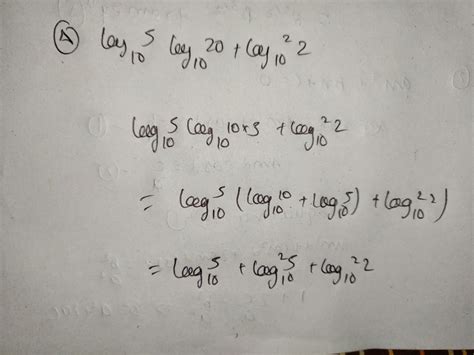 (A) log₁₀5 log₁₀20 + log₁₀²2
log₁₀5 log₁₀10×5 + log₁₀²2
= log₁₀5 (log₁₀10 + log₁₀5) + log₁₀²2)
= log₁₀5 + log₁₀²5 + log₁₀²2